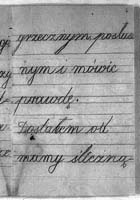 grzecznym posłu
nym i mówić
prawdę.
Dostałem od
mamy śliczną